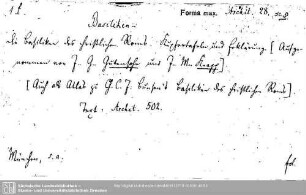 Forma max. Archit. 28,
Basiliken
die Basiliken des christlichen Roms. Kupfertafeln und Erklärung [Aufge-
nommen von J. G. Gutensohn und J. M. Knapp]
[Auch als Atlas zu G. C. J. Bunsen's Basiliken des christlichen Roms]
Text. Archit. 502.
München, s.a. fol.
Sächsische Landesbibliothek -
Staats- und Universitätsbibliothek Dresden